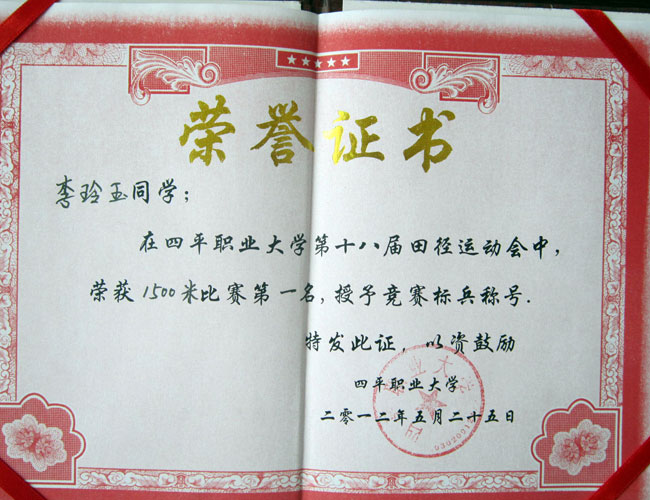 荣誉证书
李玲玉同学;
在四平职业大学第十八届田径运动会中,
荣获1500米比赛第一名,授予竞赛标兵称号.
特发此证,以资鼓励
四平职业大学
二零一二年五月二十五日